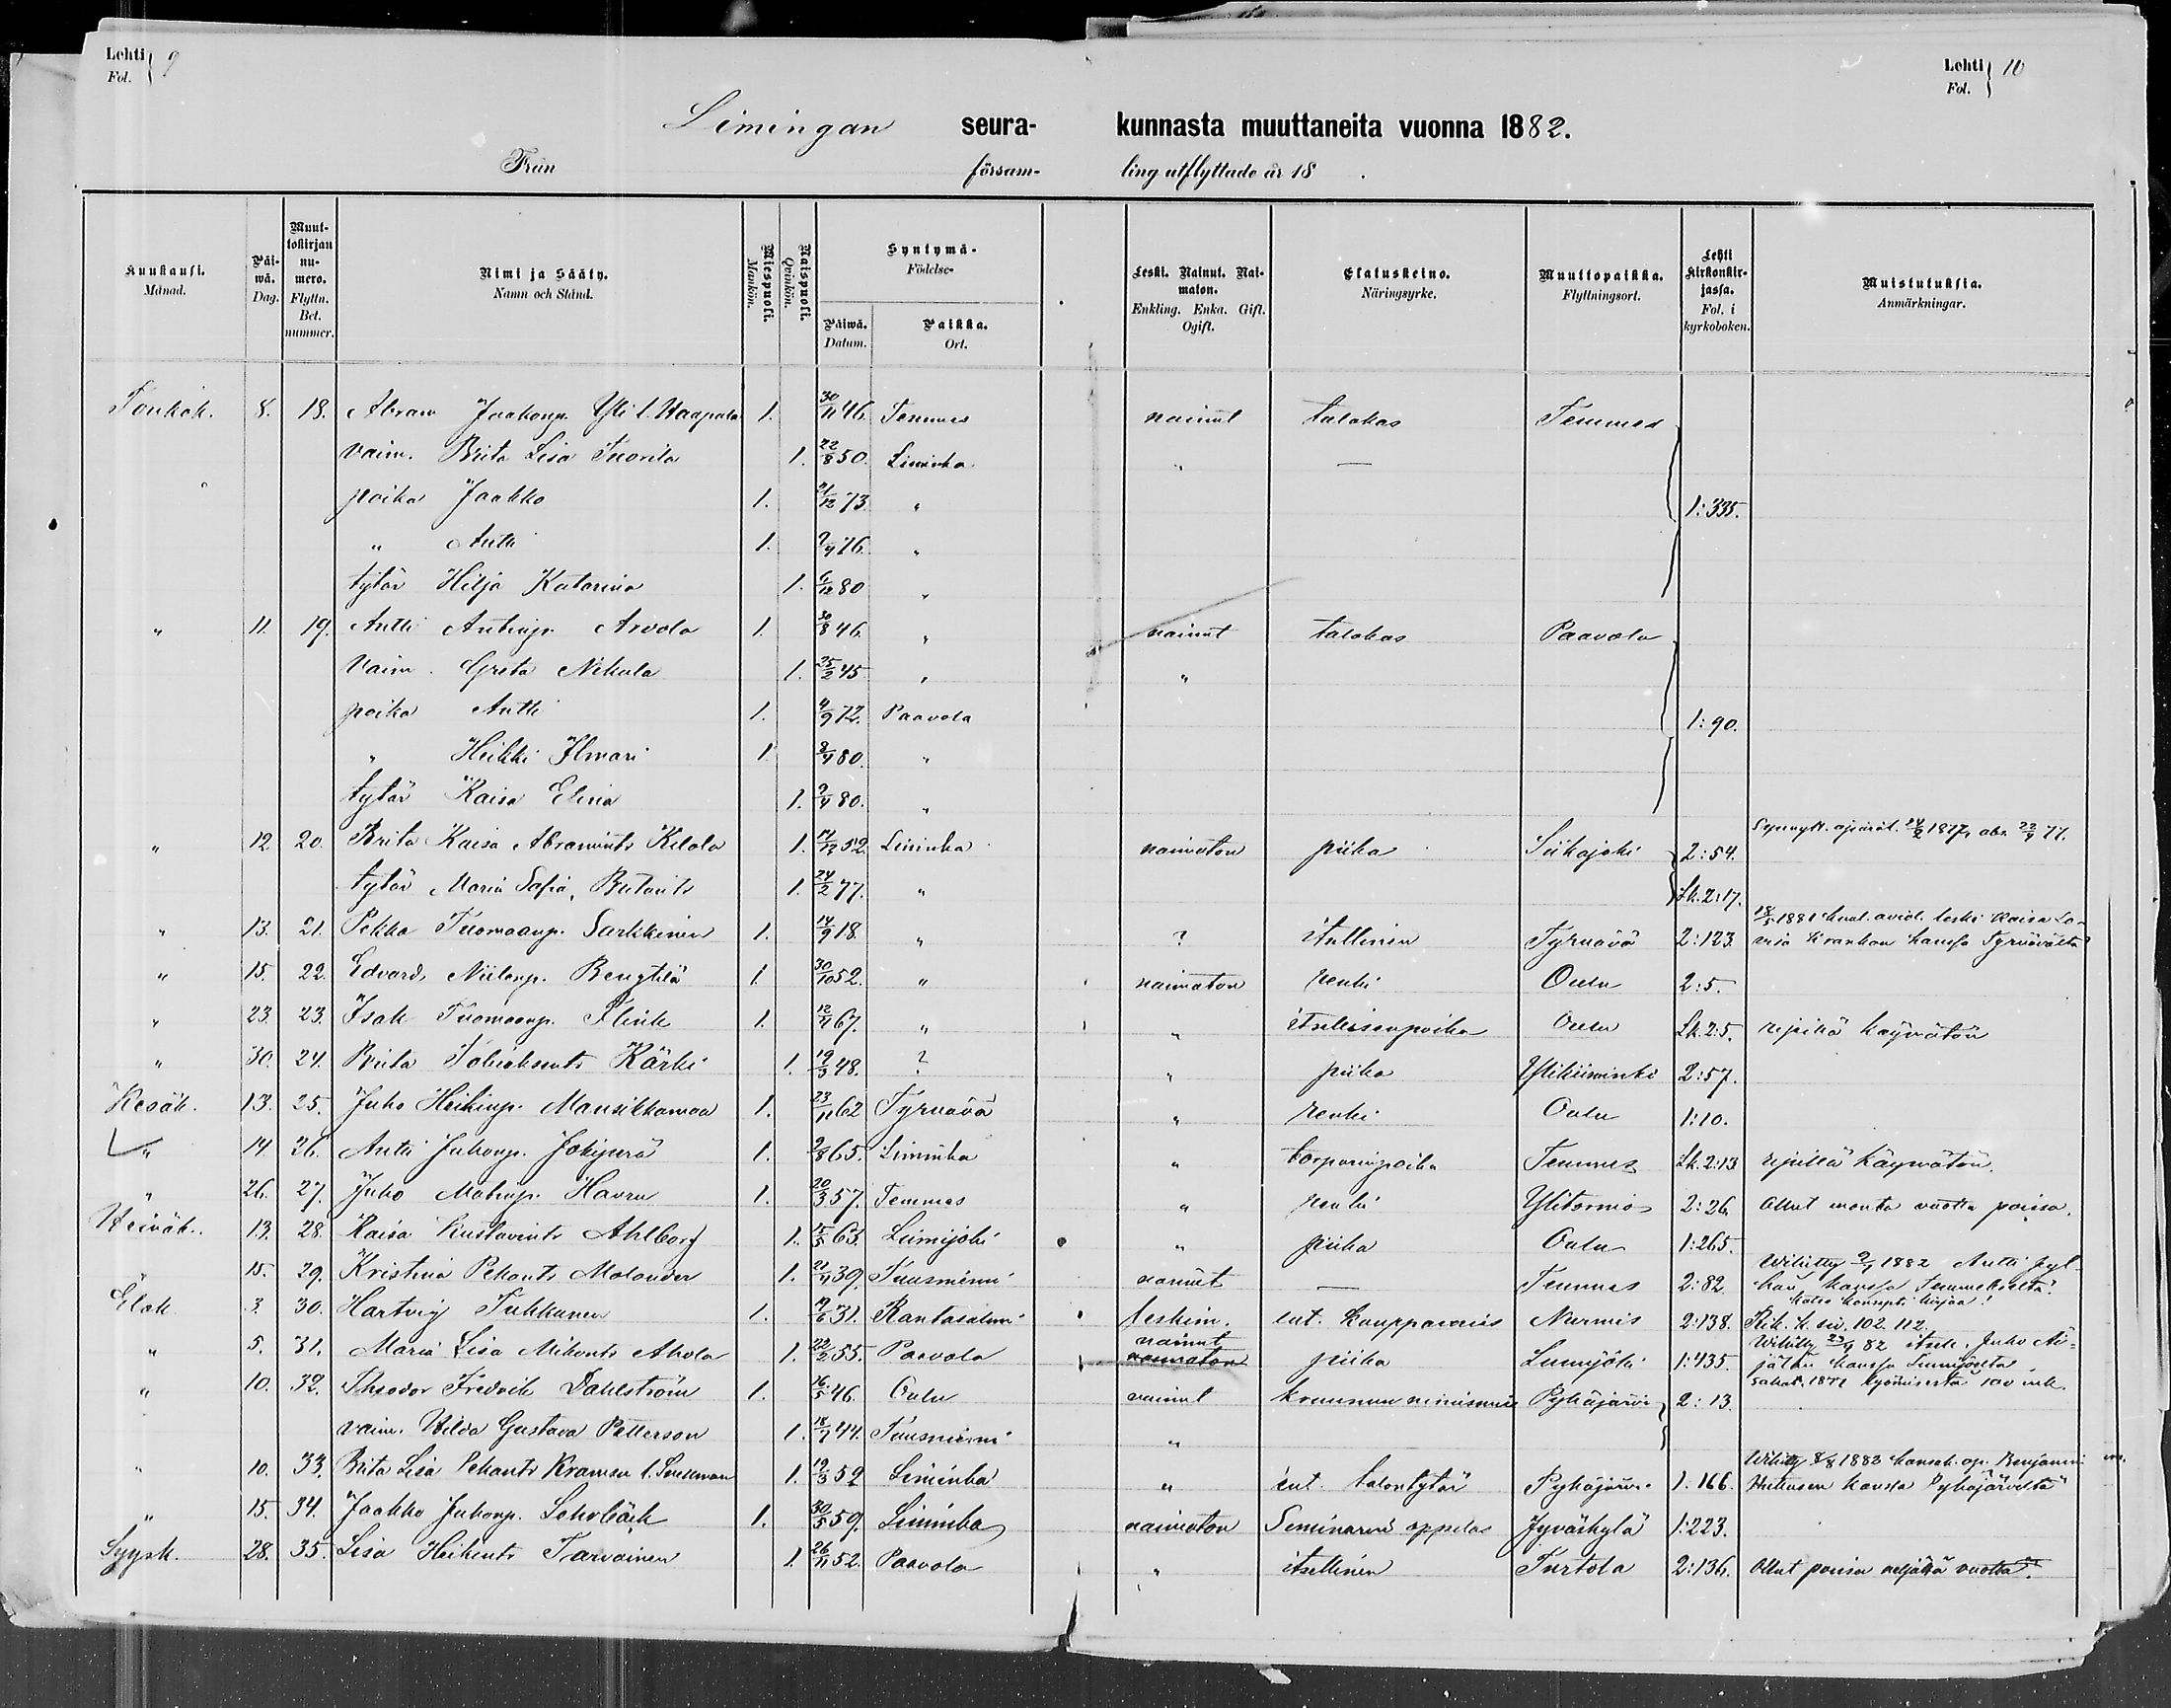 Lehti 9
Fol.
Lehti 10
Fol.
Limingan seura- kunnasta muuttaneita vuonna 1882.
Från försam- ling utflyttade år 18 .
Kuukausi. Månad. Päi-wä. Dag. Muut-tokirjan nu-mero. Flyttn. Bet. nummer. Nimi ja Sääty. Namn och Stånd. Miespuoli. Mankön. Naispuoli. Qvinkön. Syntymä- Födelse- Päiwä. Datum. Paikka. Ort. Leski. Nainut. Nai-maton. Enkling. Enka. Gift. Ogift. Elatuskeino. Näringsyrke. Muuttopaikka. Flyttningsort. Lehti Kirkonkir-jassa. Fol. i kyrkoboken. Muistutuksia. Anmärkningar.
Toukok. 8. 18. Abram Jaakonp. Yli l. Haapala 1. 30/11 46. Temmes nainut talokas Temmes
vaim. Brita Lisa Tuorila 1. 22/8 50. Liminka " —
poika Jaakko 1. 21/12 73. " 1:335.
" Antti 1. 9/4 76. "
tytär Hilja Katarina 1. 6/12 80 "
" 11. 19. Antti Antinp. Arvola 1. 30/8 46. " nainut talokas Paavola
vaim. Greta Nikula 1. 25/2 45 " "
poika Antti 1. 4/9 72. Paavola 1:90.
" Heikki Ilmari 1. 2/4 80. "
tytär Kaisa Elina 1. 2/4 80. "
" 12. 20. Brita Kaisa Abramint. Kilala 1. 14/12 52 Liminka naimaton piika Siikajoki 2:54. Synnytt. äpärät. 24/2 1877, abs. 22/4 77.
tytär Maria Sofia, Britant. 1. 24/2 77. " Lk. 2:17.
" 13. 21. Pekka Tuomaanp. Sarkkinen 1. 14/9 18. " ? itsellinen Tyrnävä 2:123. 18/5 1881 kuul. aviol. leski Kaisa Lo-visa Krankan kanssa Tyrnävältä
" 15. 22. Edvard Niilonp. Bengtilä 1. 30/10 52. " naimaton renki Oulu 2:5.
" 23. 23. Isak Tuomaanp. Flink 1. 12/4 67. " " itsellisenpoika Oulu Lk. 2:5. ripillä käymätön
" 30. 24. Brita Tobiaksent. Kärki 1. 19/3 48. ? " piika Ylikiiminki 2:57.
Kesäk. 13. 25. Juho Heikinp. Mansikkamaa 1. 23/11 62 Tyrnävä " renki Oulu 1:10.
" 14. 26. Antti Juhonp. Jokiperä 1. 2/8 65. Liminka " torparinpoika Temmes Lk. 2:13 ripillä käymätön.
" 26. 27. Juho Matinp. Hauru 1. 20/3 57. Temmes " renki Ylitornio 2:26. Ollut monta vuotta poissa.
Heinäk. 13. 28. Kaisa Kustavint. Ahlborg 1. 15/5 63. Lumijoki " piika Oulu 1:265.
" 15. 29. Kristina Pekant. Molander 1. 21/4 39. Tuusniemi nainut — Temmes 2:82. Wihitty 9/7 1882 Antti kanssa Temmekseltä.
Elok. 3. 30. Hartvig Tukkunen 1. 7/6 31. Rantasalmi leskim. ent. kauppamies Nurmis 2:138. Katso konsepti kirjaa! Rik. K. siv. 102. 112.
" 5. 31. Maria Lisa Mikont. Ahola 1. 22/2 55. Paavola nainut naimaton piika Lumijoki 1:435. Wihitty 23/4 82 itsell. Juho kanssa Lumijoelta.
" 10. 32. Theodor Fredrik Dahlström 1. 16/5 46. Oulu nainut kruunun nimismies Pyhäjärvi 2:13. 100 mk.
vaim. Hilda Gustava Petterson 1. 18/7 44. Tuusniemi "
" 10. 33. Brita Lisa Pekant. Kramsu 1. 19/3 52 Liminka " ent. talontytär Pyhäjärvi 1:166. Wihitty 8/8 1882 kansak. op. Benjamin kanssa Pyhäjärveltä
" 15. 34. Jaakko Juhonp. Schröbäck 1. 30/5 59. Liminka naimaton Seminarin oppilas Jyväskylä 1:223.
Syysk. 28. 35. Lisa Heikint. Tarvainen 1. 26/11 52. Paavola " itsellinen Turtola 2:136. Ollut poissa neljättä vuotta.